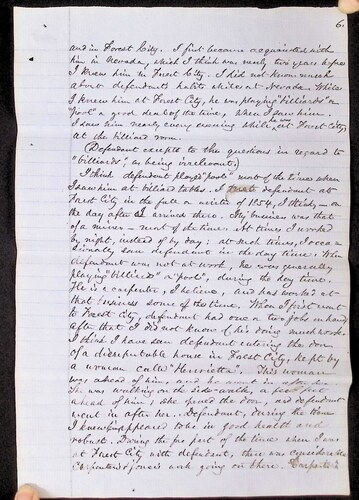 6.
and in Forest City. I first became acquainted with
him in Nevada, which I think was nearly two years before
I knew him in Forest City. I did not know much
about defendants habits whilst at Nevada. While
I knew him at Forest City, he was playing "billiards" or
"pool" a good deal of the time, when I saw him.
I saw him nearly every evening while he was at Forest City,
at the billiard room.
(Defendant excepts to the questions in regard to
"billiards", as being irrelevant;)
I think defendant played "pool" most of the times when
I saw him at billiard tables. I met defendant at
Forest City in the fall or winter of 1854, I think, - on
the day after I arrived there. My business was that
of a miner - most of the time. At times I worked
by night, instead of by day; at such times, I occa-
sionally saw defendant in the day time. When
defendant was not at work, he was generally
playing "billiards" or "pool", during the day time.
He is a carpenter, I believe, and has worked at
that business some of the time. When I first went
to Forest City, defendant had one or two jobs on hand,
after that I did not know of his doing much work.
I think I have seen defendant entering the door
of a disreputable house in Forest City, kept by
a woman called "Henrietta". This woman
was ahead of him, and he was in
She was walking on the side walk, a few feet
ahead of him; she opened the door, and defendant
went in after her. Defendant, during the time
I knew him appeared to be in good health and
robust. During the fore part of the time when I was
at Forest City with defendant, there was considerable
carpenter's & joiner's work going on there. Carpenter's